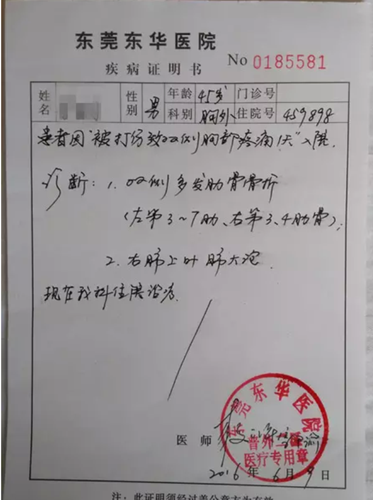 东莞东华医院
疾病证明书
No 0185581
姓名 性别 男 年龄 45岁 门诊号
科别 胸外 住院号 459898
患者因"被打伤致双侧胸部疼痛1天"入院.
诊断: 1. 双侧多发肋骨骨折
(左第3~7肋、右第3、4肋骨);
2. 右肺上叶肺大泡
现在我科住院治疗.
东莞东华医院
医疗专用章
医师
2016年6月9日
注: 此证明须经过盖公章方为有效